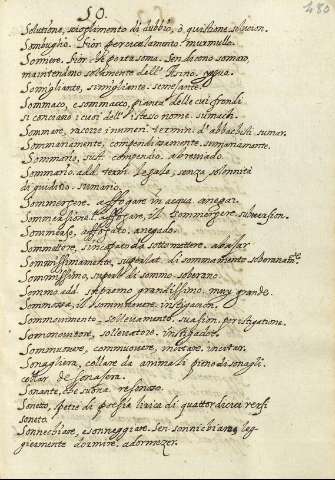 SO.
480
Solutione, scioglimento di dubbio, ò quistione solucion.
Sombuglio. Fior per ciculamento. murmullo.
Somere. Fior. che porta soma. Sen. dicono somaro,
intendono solamente dell' Asino. yegua.
Somigliante, simigliante. semejante.
Sommaco, e sommacco, pianta delle cui frondi
si conciano i cuoi dell' istesso nome. sumach.
Sommare, racorre i numeri. termin. d' abbachisti. sumar.
Sommariamente, compendiosamente. sumariamente.
Sommario, sust. compendio. abreviado.
Sommario. add. term. legale, senza solennità
di giuditio. sumario.
Sommergere. affogare in acqua. anegar.
Sommersione. l' affogare, il sommergere. subversion.
Sommerso, affogato, anegado.
Sommettere, sincopato da sottomettere. abaxar
Sommissimamente, superlat. di sommamente. soberanamte.
Sommissimo, superl. di sommo. soberano.
Sommo. add. supremo grandissimo. muy grande.
Sommossa, il sommuovere. instigacion.
Sommovimento, sollevamento. suasion. persuasione.
Sommovitore, sollevatore. instigador.
Sommuovere, commuovere, incitare. incitar.
Sonagliera, collare da animali pieno di sonagli.
collar de sonajera.
Sonante, che suona. resonoso.
Sonetto, spetie di poesia lirica di quattordeci versi
soneto.
Sonnechiare, e sonneggiare. Sen. sonnichiare, leg-
giermente dormire, adormezer.